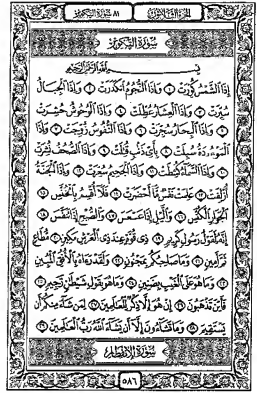 الجزء الثلاثون ٨١ سورة التكوير
سورة التكوير
بسم الله الرحمن الرحيم
إِذَا الشَّمْسُ كُوِّرَتْ ١ وَإِذَا النُّجُومُ انْكَدَرَتْ ٢ وَإِذَا الْجِبَالُ
سُيِّرَتْ ٣ وَإِذَا الْعِشَارُ عُطِّلَتْ ٤ وَإِذَا الْوُحُوشُ حُشِرَتْ
٥ وَإِذَا الْبِحَارُ سُجِّرَتْ ٦ وَإِذَا النُّفُوسُ زُوِّجَتْ ٧ وَإِذَا
الْمَوْءُودَةُ سُئِلَتْ ٨ بِأَيِّ ذَنْبٍ قُتِلَتْ ٩ وَإِذَا الصُّحُفُ نُشِرَتْ
١٠ وَإِذَا السَّمَاءُ كُشِطَتْ ١١ وَإِذَا الْجَحِيمُ سُعِّرَتْ ١٢ وَإِذَا الْجَنَّةُ
أُزْلِفَتْ ١٣ عَلِمَتْ نَفْسٌ مَا أَحْضَرَتْ ١٤ فَلَا أُقْسِمُ بِالْخُنَّسِ ١٥
الْجَوَارِ الْكُنَّسِ ١٦ وَاللَّيْلِ إِذَا عَسْعَسَ ١٧ وَالصُّبْحِ إِذَا تَنَفَّسَ ١٨
إِنَّهُ لَقَوْلُ رَسُولٍ كَرِيمٍ ١٩ ذِي قُوَّةٍ عِنْدَ ذِي الْعَرْشِ مَكِينٍ ٢٠ مُطَاعٍ
ثَمَّ أَمِينٍ ٢١ وَمَا صَاحِبُكُمْ بِمَجْنُونٍ ٢٢ وَلَقَدْ رَآهُ بِالْأُفُقِ الْمُبِينِ
٢٣ وَمَا هُوَ عَلَى الْغَيْبِ بِضَنِينٍ ٢٤ وَمَا هُوَ بِقَوْلِ شَيْطَانٍ رَجِيمٍ ٢٥
فَأَيْنَ تَذْهَبُونَ ٢٦ إِنْ هُوَ إِلَّا ذِكْرٌ لِلْعَالَمِينَ ٢٧ لِمَنْ شَاءَ مِنْكُمْ أَنْ
يَسْتَقِيمَ ٢٨ وَمَا تَشَاءُونَ إِلَّا أَنْ يَشَاءَ اللَّهُ رَبُّ الْعَالَمِينَ ٢٩
سورة الانفطار
٥٨٦